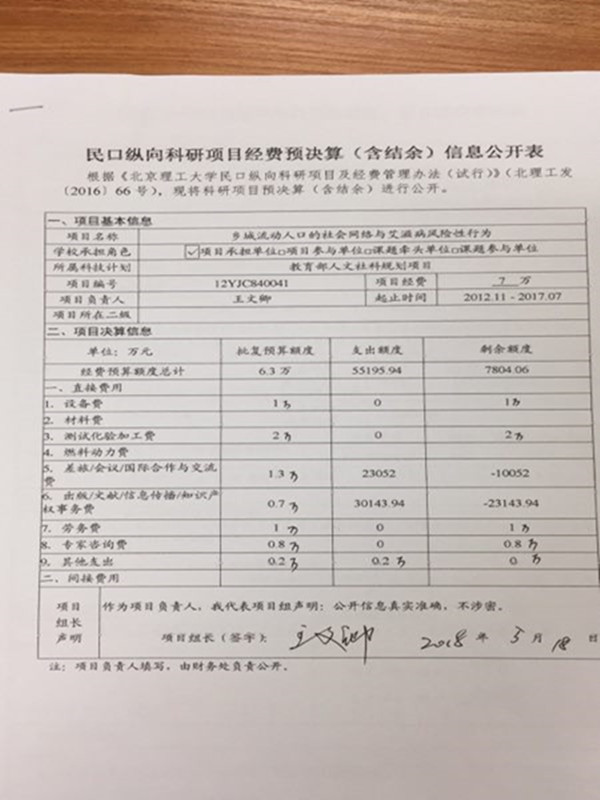 民口纵向科研项目经费预决算（含结余）信息公开表
根据《北京理工大学民口纵向科研项目及经费管理办法（试行）》（北理工发
〔2016〕66号），现将科研项目预决算（含结余）进行公开。
一、项目基本信息
项目名称 乡城流动人口的社会网络与艾滋病风险性行为
学校承担角色 ☑项目承担单位□项目参与单位□课题牵头单位□课题参与单位
所属科技计划 教育部人文社科规划项目
项目编号 12YJC840041 项目经费 7 万
项目负责人 王文卿 起止时间 2012.11 - 2017.07
项目所在二级
二、项目决算信息
单位：万元 批复预算额度 支出额度 剩余额度
经费预算额度总计 6.3 万 55195.94 7804.06
一、直接费用
1. 设备费 1 万 0 1万
2. 材料费
3. 测试化验加工费 2 万 0 2 万
4. 燃料动力费
5. 差旅/会议/国际合作与交流
费 1.3 万 23052 -10052
6. 出版/文献/信息传播/知识产
权事务费 0.7 万 30143.94 -23143.94
7. 劳务费 1 万 0 1 万
8. 专家咨询费 0.8 万 0 0.8 万
9. 其他支出 0.2 万 0.2 万 0 万
二、间接费用
项目
组长
声明
作为项目负责人，我代表项目组声明：公开信息真实准确，不涉密。
项目组长（签字）： 王文卿 2018 年 5 月 18 日
注：项目负责人填写，由财务处负责公开。